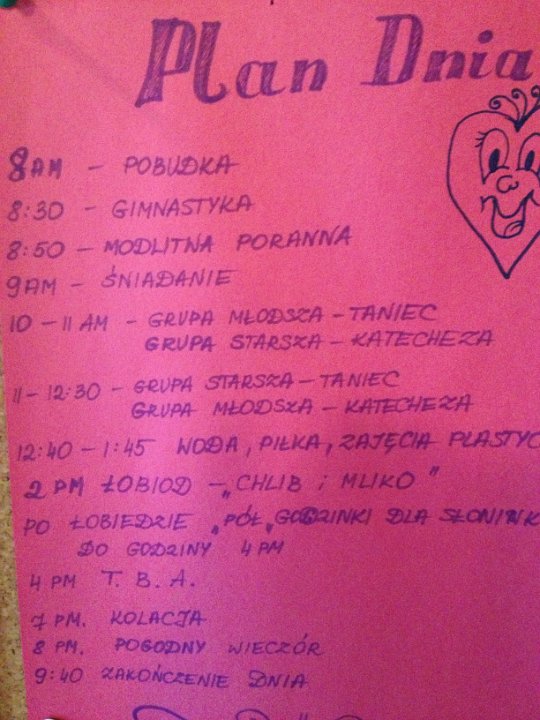 Plan Dnia
8AM - POBUDKA
8:30 - GIMNASTYKA
8:50 - MODLITWA PORANNA
9AM - ŚNIADANIE
10 - 11 AM - GRUPA MŁODSZA - TANIEC
GRUPA STARSZA - KATECHEZA
11 - 12:30 - GRUPA STARSZA - TANIEC
GRUPA MŁODSZA - KATECHEZA
12:40 - 1:45 WODA, PIŁKA, ZAJĘCIA PLASTYC
2 PM ŁOBIOD - „CHLIB i MLIKO"
PO ŁOBIEDZIE „PÓŁ„GODZINKI DLA SŁONINK
DO GODZINY 4 PM
4 PM T. B. A.
7 PM. KOLACJA
8 PM. POGODNY WIECZÓR
9:40 ZAKOŃCZENIE DNIA